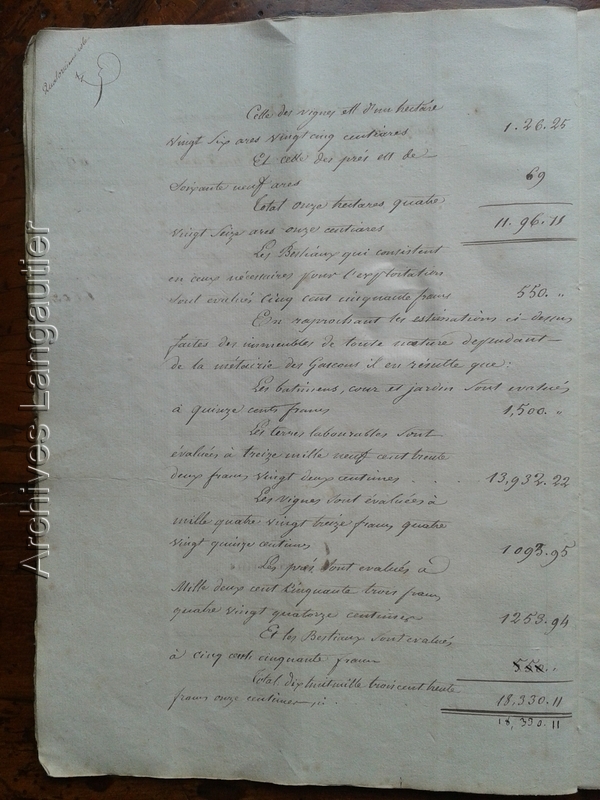 Celle des vignes est d'un hectare
vingt six ares vingt cinq centiares 1.26.25
Et celle des prés est de
Soixante neuf ares 69
Total onze hectares quatre
vingt seize ares onze centiares 11.96.11
Les Bestiaux qui consistent
en ceux nécessaires pour l'exploitation
sont evalués cinq cent cinquante francs 550. "
En raprochant les estimations ci-dessus
faites des immeubles de toute nature dependant
de la métairie des Gascons il en résulte que:
Les batimens, cour et jardin sont evalués
à quinze cents francs 1,500. "
Les terres labourables sont
évaluées à treize mille neuf cent trente
deux francs vingt deux centimes . . . 13,932.22
Les vignes sont évaluées à
mille quatre vingt treize francs quatre
vingt quinze centimes 1093.95
Les prés sont evalués à
Mille deux cent cinquante trois francs
quatre vingt quatorze centimes 1253.94
Et les Bestiaux sont evalués
à cinq cents cinquante francs 550. "
Total dix huit mille trois cent trente
francs onze centimes 18,330.11
18,330.11
Archives Langautier